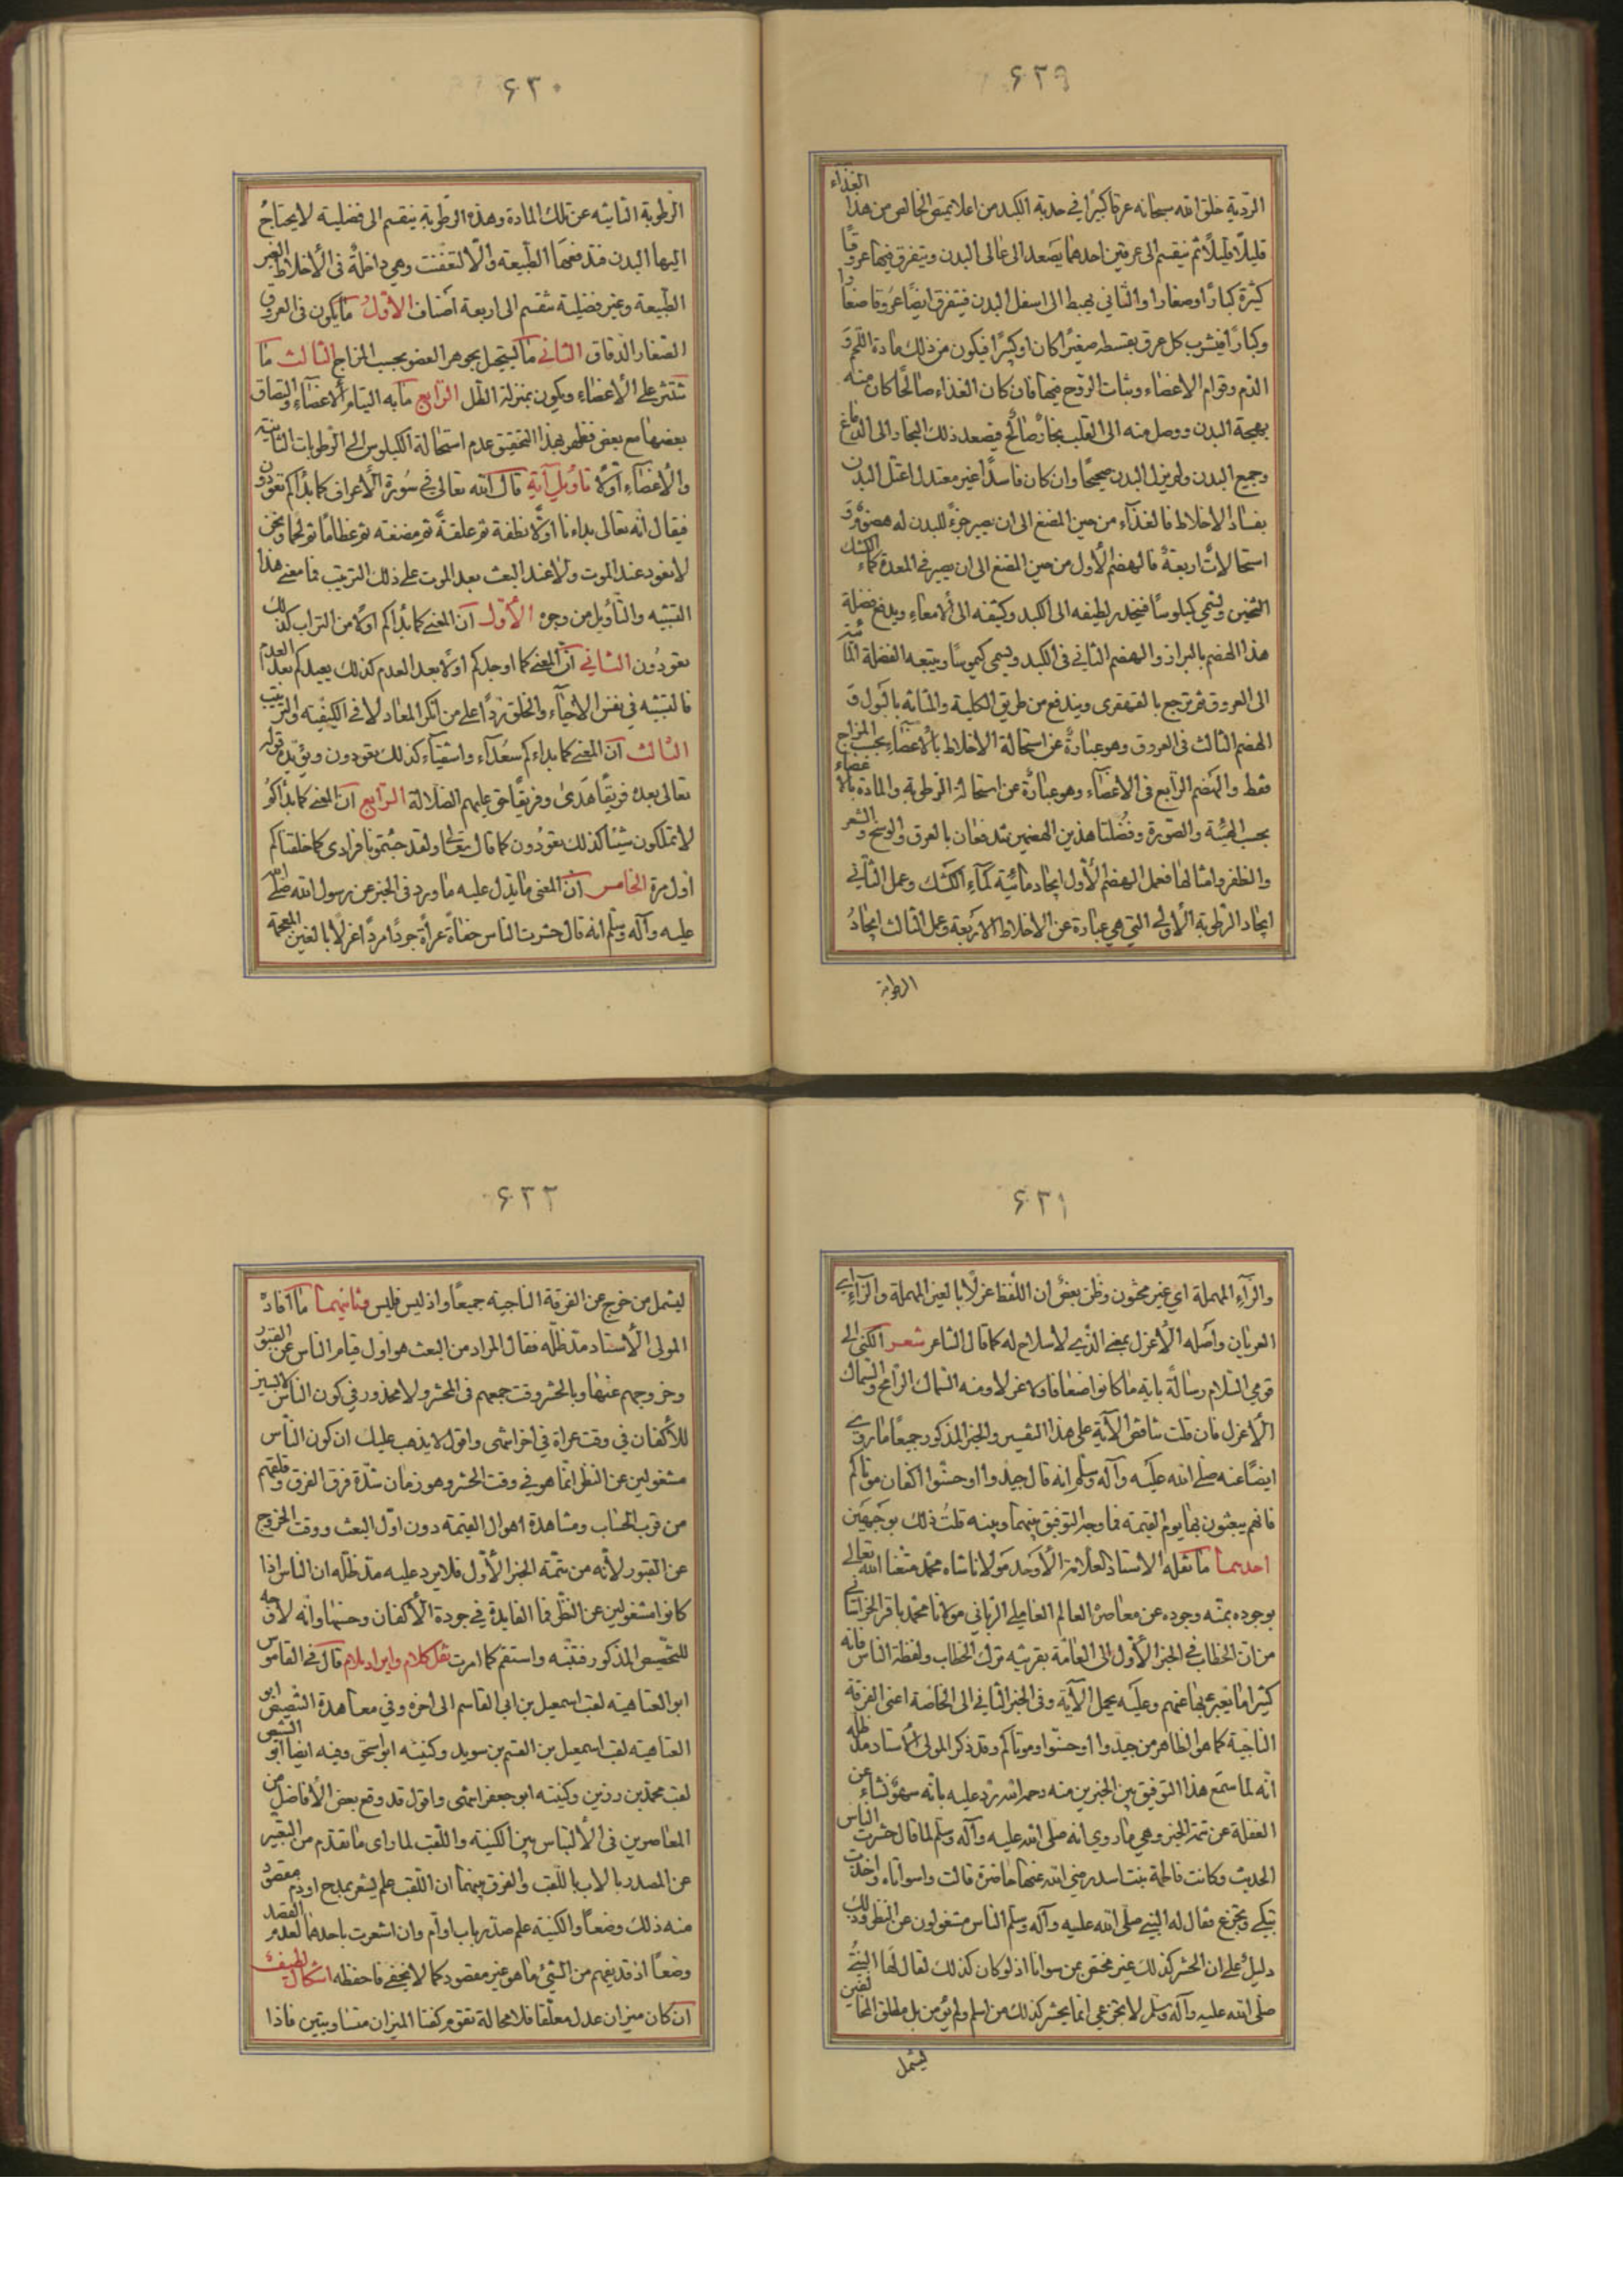 ۶۲۹
الردية خلق الله سبحانه عرقا كبيرًا في حدبة الكبد من اعلا يمتص الخالص من هذا الغذآء
قليلًا قليلًا ثم ينقسم الى عرقين احدهما يَصعد الى عالى البدن ويتفرق فيها عروقًا
كثيرة كبارًا وصغارا والثاني يهبط الى اسفل البدن فيتفرق ايضًا عروقا صغارا
وكبارًا فيشرب كل عرق بقسطه صغيرًا كان او كبيرًا فيكون من ذلك مادة اللحم وَ
الدم وقوام الاعضاء وثبات الروح فيها فان كان الغذاء صالحًا كان منه
بهجة البدن ووصل منه الى القلب بخارٌ صالحٌ فيصعد ذلك البخار الى الدماغ
وجميع البدن ولم يزل البدن صحيحًا وان كان فاسدًا غير معتدل اعتل البدن
بفساد الاخلاط فالغذآء من حين المضغ الى ان يصير جزءً للبدن له هضوم وَ
استحالاتٌ اربعةٌ فالهضم الأول من حين المضغ الى ان يصير في المعدة كماء الكشك
الثخين ويسمي كيلوسًا فينحدر لطيفه الى الكبد وكثيفه الى الأمعاء ويدفع فضلة
هذا الهضم بالبراز والهضم الثاني في الكبد ويسمى كيموسًا ويتبعه الفضلة المائية
الى العروق ثم ترجع بالقهقرى ويندفع من طريق الكلية والمثانه بالبول وَ
الهضم الثالث فى العروق وهو عبارةٌ عن استحالة الاخلاط بالأعضاء بحسب المزاج
فقط والهضم الرابع فى الاعضآء وهو عبارةٌ عن استحالة الرطوبة والمادة بالاعضاء
بحسب الهيئة والصّورة وفضلتا هذين الهضمين تندفعان بالعرق والوسخ والشعر
والظفر وامثالها فعمل الهضم الأوّل ايجاد مائية كمآء الكشك وعمل الثاني
ايجاد الرطوبة الأولى التي هي عبارة عن الاخلاط الاربعة وعمل الثالث ايجادُ
الرطوبة
۶۳۰
الرطوبة الثانيه عن تلك المادة وهذه الرطوبة ينقسم الى فضلية لا يحتاجُ
اليها البدن فتدفعها الطبيعة والّا لتعفنت وهي داخلةٌ فى الأخلاط الغير
الطبيعة وغير فضلية تنقسم الى اربعة اصناف الأوّلُ ما يكون فى العروق
الصغار الدقاق الثانى ما يستحيل بجوهر العضو بحسب المزاج الثالث ما
تنتثر على الأعضاء ويكون بمنزلة الطل الرابع ما به التيام الاعضآء والتصاق
بعضها مع بعض فظهر بهذا التحقيق عدم استحالة الكيلوس الى الرطوبات الثانية
والأعضاء اوّلًا تأويل آية قال الله تعالى في سُورة الأعراف كما بدأكم تعودون
فيقال انّه تعالى بداءنا اوّلًا نطفة ثم علقةً ثم مضغه ثم عظامًا ثم لحما ونحن
لا نعود عند الموت ولا عند البعث بعد الموت على ذلك الترتيب فما معنى هذا
التشبيه والتأويل من وجوه الأوّل أن المعني كما بدأكم اوّلًا من التراب كذلك
تعودُون الثاني أن المعنى كما اوجدكم اولًا بعد العدم كذلك يعيدكم بعد العدم
فالتشبيه في نفس الاحيآء والخلق ردًا على من انكر المعاد لا في الكيفيّه والترتيب
الثالث أن المعنى كما بداءكم سعدآء واشقيآء كذلك تعودون ويؤيّده قوله
تعالى بعده فريقًا هَدَى وفريقًا حق عليهم الضلالة الرابع أن المعنى كما بدأكم
لا تملكون شيئا كذلك تعودُون كما قال تعالى ولقد جئتمونا فرادى كما خلقناكم
اول مرة الخامس أن المعنى ما يدل عليه ما ورد فى الخبر عن رسول الله صلى الله
عليه وآله وسلم انه قال حشرت الناس حفاةً عراةً جردًا مردًا غرلًا بالغين المعجمة
۶۳۱
والرآء المهملة اى غير مختون وظن بعضٌ ان اللفظ عزلًا بالعين المهملة والزآء اى
العريان واصله الأعزل بمعنى الذي لا سلاح له كما قال الشاعر شعر الكنى الى
قومي السّلام رسالةً باية ما كانوا ضعافا ولا عزلا ومنه السّماك الرامح والسّماك
الأعزل فان قلت تناقض الآية على هذا التفسير والخبر المذكور جميعًا ما روي
ايضًا عنه صلى الله عليه وآله وسلم انه قال جيدوا او حسّنوا اكفان موتاكم
فانهم يبعثون بها يوم القيمة فما وجه التوفيق بينهما وبينه قلتُ ذلك بوَجهَين
احدهما ما نقله الاستاذ العلّامة الأوحد مولانا شاه محمّد متّعنا الله تعالى
بوجوده بمنّه وجوده عن معاصره العالم العاملي الربّاني مولانا محمّد باقر الخراسانى
من ان الخطاب في الخبر الأوّل الى العامّة بقرينه ترك الخطاب ولفظة الناس فانّه
كثيرا ما يعبر بها عنهم وعليه يحمل الآية وفى الخبر الثانى الى الخاصة اعنى الفرقة
الناجية كما هو الظاهر من جيّدوا او حسّنوا وموتاكم وقد ذكر المولى الأستاد مدّ ظله
انّه لما سمع هذا التوفيق بين الخبرين منه رحمه الله ردّ عليه بانّه سهوٌ نشاء عن
الغفلة عن تتمة الخبر وهي ما روي انه صلى الله عليه وآله وسلم لما قال حشرت الناس
الحديث وكانت فاطمة بنت اسد رضي الله عنها حاضرة قالت واسوأتاه واخذت
تبكي وتجزع فقال له النبي صلى الله عليه وآله وسلم الناس مشغولون عن النظر وذلك
دليلٌ على ان الحشر كذلك غير مختص بمن سوانا اذ لو كان كذلك لقال لها النبيُّ
صلى الله عليه وآله وسلم لا تجزعى انما يحشر كذلك من اسلم ولم يؤمن بل مطلق المخالفين
ليشمل
۶۳۲
ليشمل من خرج عن الفرقة الناجية جميعًا واذ ليس فليس وثانيهما ما افادهُ
المولى الأستاد مدّ ظلّه فقال المراد من البعث هو اول قيام الناس عن القبور
وخروجهم عنها وبالحشر وقت جمعهم فى المحشر ولا محذور في كون الناس لابسين
للأكفان في وقت عراة في اخر انتهى واقول لا يذهب عليك ان كون الناس
مشغولين عن النظر انما هو في وقت الحشر وهو زمان شدّة فرق الفرق وقلقهم
من قرب الحساب ومشاهدة اهوال القيمة دون اوّل البعث ووقت الخروج
عن القبور لأنّه من تتمّة الخبر الأوّل فلا يرد عليه مدّ ظلّه ان الناس اذا
كانوا مشغولين عن النظر فما الفايدة في جودة الأكفان وحسنها وانّه لا وجه
للتخصيص المذكور فتنبّه واستقم كما امرت نقل كلام وايراد ملام قال فى القاموس
ابو العتاهية لقب اسمعيل بن ابي القاسم الى اخره وفي معاهدة التنصيص ابو
العتاهية لقب اسمعيل بن القسم بن سويد وكنيته ابو اسحق وفيه ايضا ابو الشيص
لقب محمّد بن رزين وكنيته ابو جعفر انتهى واقول قد وقع بعض الأفاضل من
المعاصرين فى الألتباس بين الكنية واللقب لما راى ما تقدّم من التعبير
عن المصدر بالاب باللّقب والفرق بينهما ان اللقب علم يشعر بمدح او ذم مقصود
منه ذلك وضعًا والكنية علم صدّر باب او أم وان اشعرت باحدهما لعدم القصد
وضعًا اذ قد يفهم من الشيئ ما هو غير مقصود كما لا يخفى فاحفظه اشكال لطيف
ان كان ميزان عدل معلّقا فلا محالة تقوم كفتا الميزان متساويتين فاذا